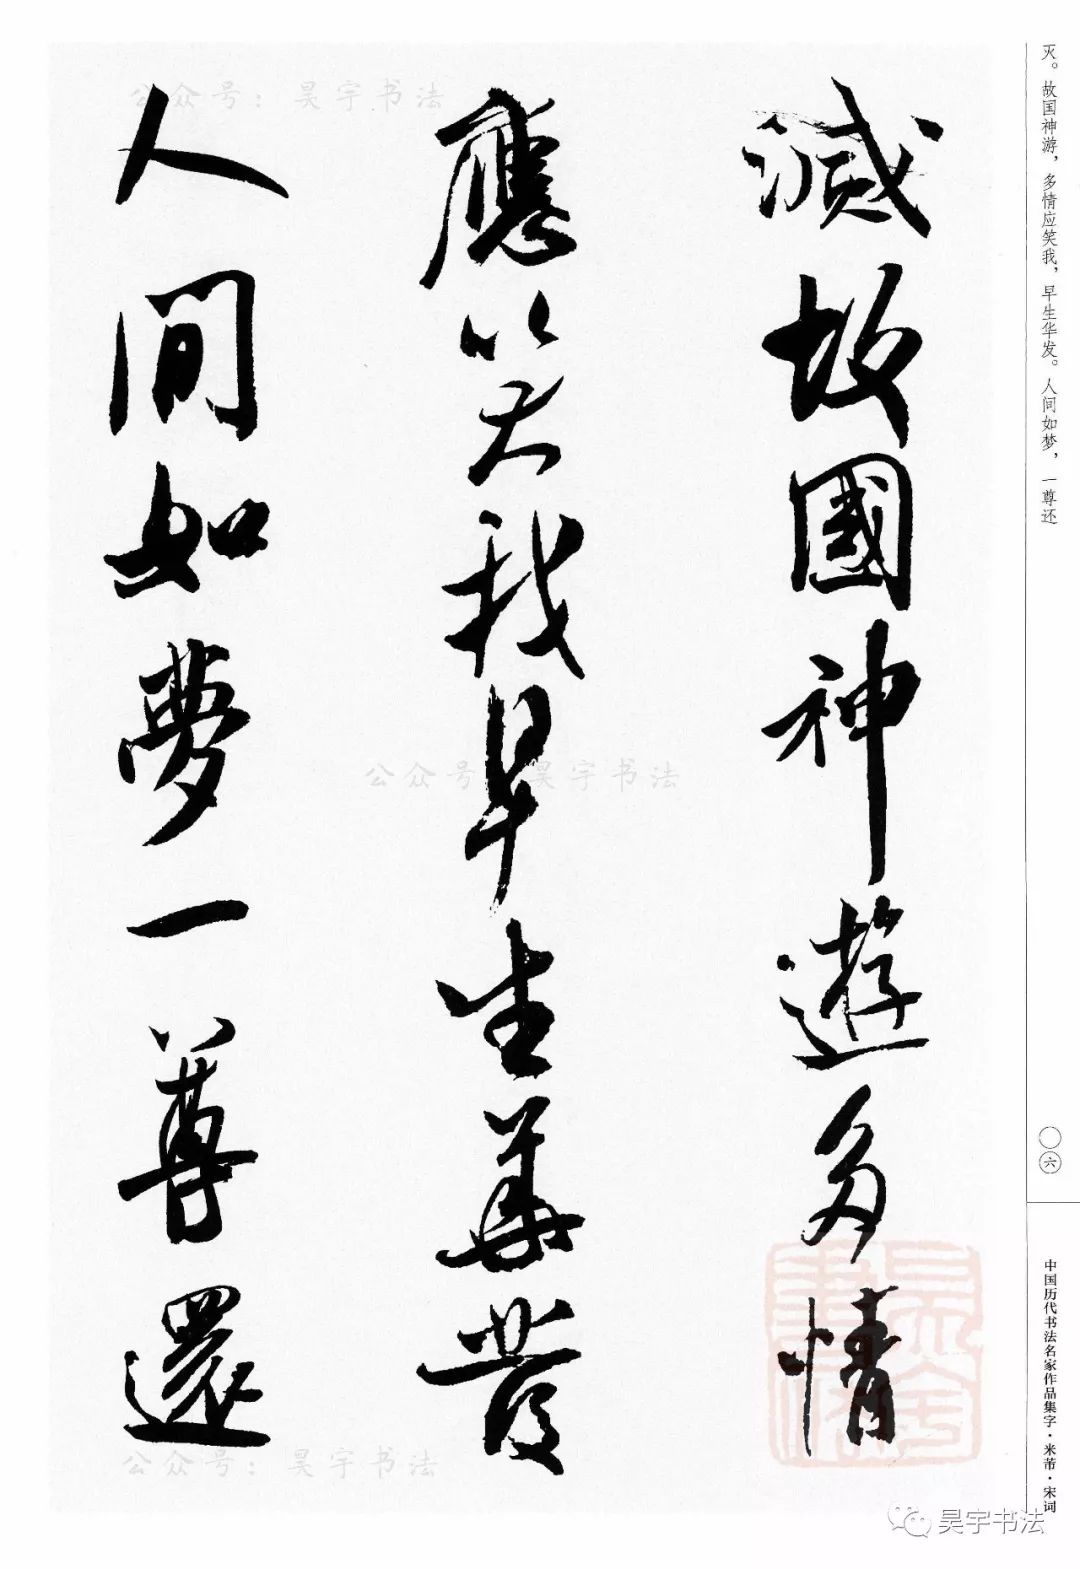 灭。故国神游，多情应笑我，早生华发。人间如梦，一尊还
滅故國神遊多情
應笑我早生華發
人間如夢一尊還
〇六
中国历代书法名家作品集字·米芾·宋词
公众号：昊宇书法
公众号：昊宇书法
公众号：昊宇书法
昊宇书法